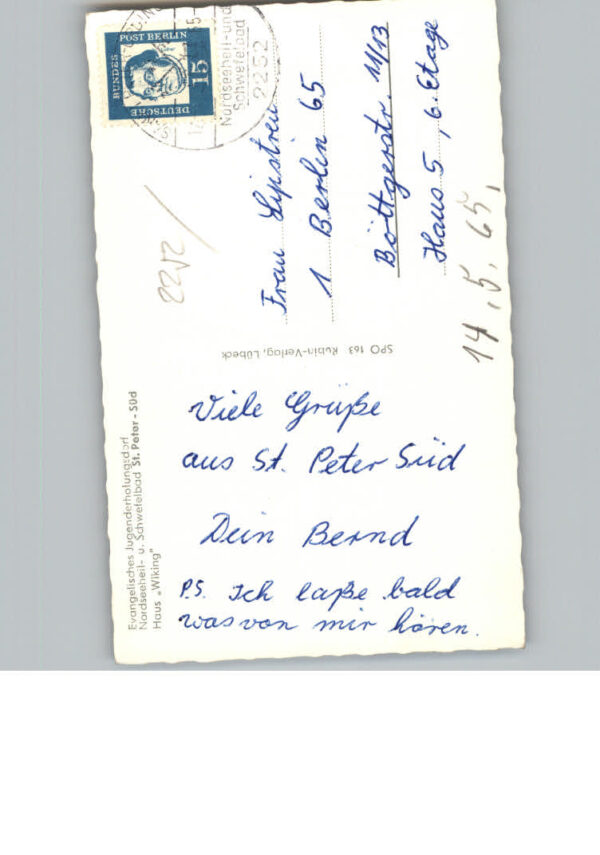 DEUTSCHE
BUNDES
POST BERLIN
15
Nordseeheil-und
Schwefelbad
2252
Frau Lipstreu
1 Berlin 65
Böttgerstr. 11/13
Haus 5, 6. Etage
14.5.65.
2252
SPO 163 Rubin-Verlag, Lübeck
Evangelisches Jugenderholungsdorf
Nordseeheil- u. Schwefelbad St. Peter-Süd
Haus „Wiking"
Viele Grüße
aus St. Peter Süd
Dein Bernd
P.S. Ich laße bald
was von mir hören.